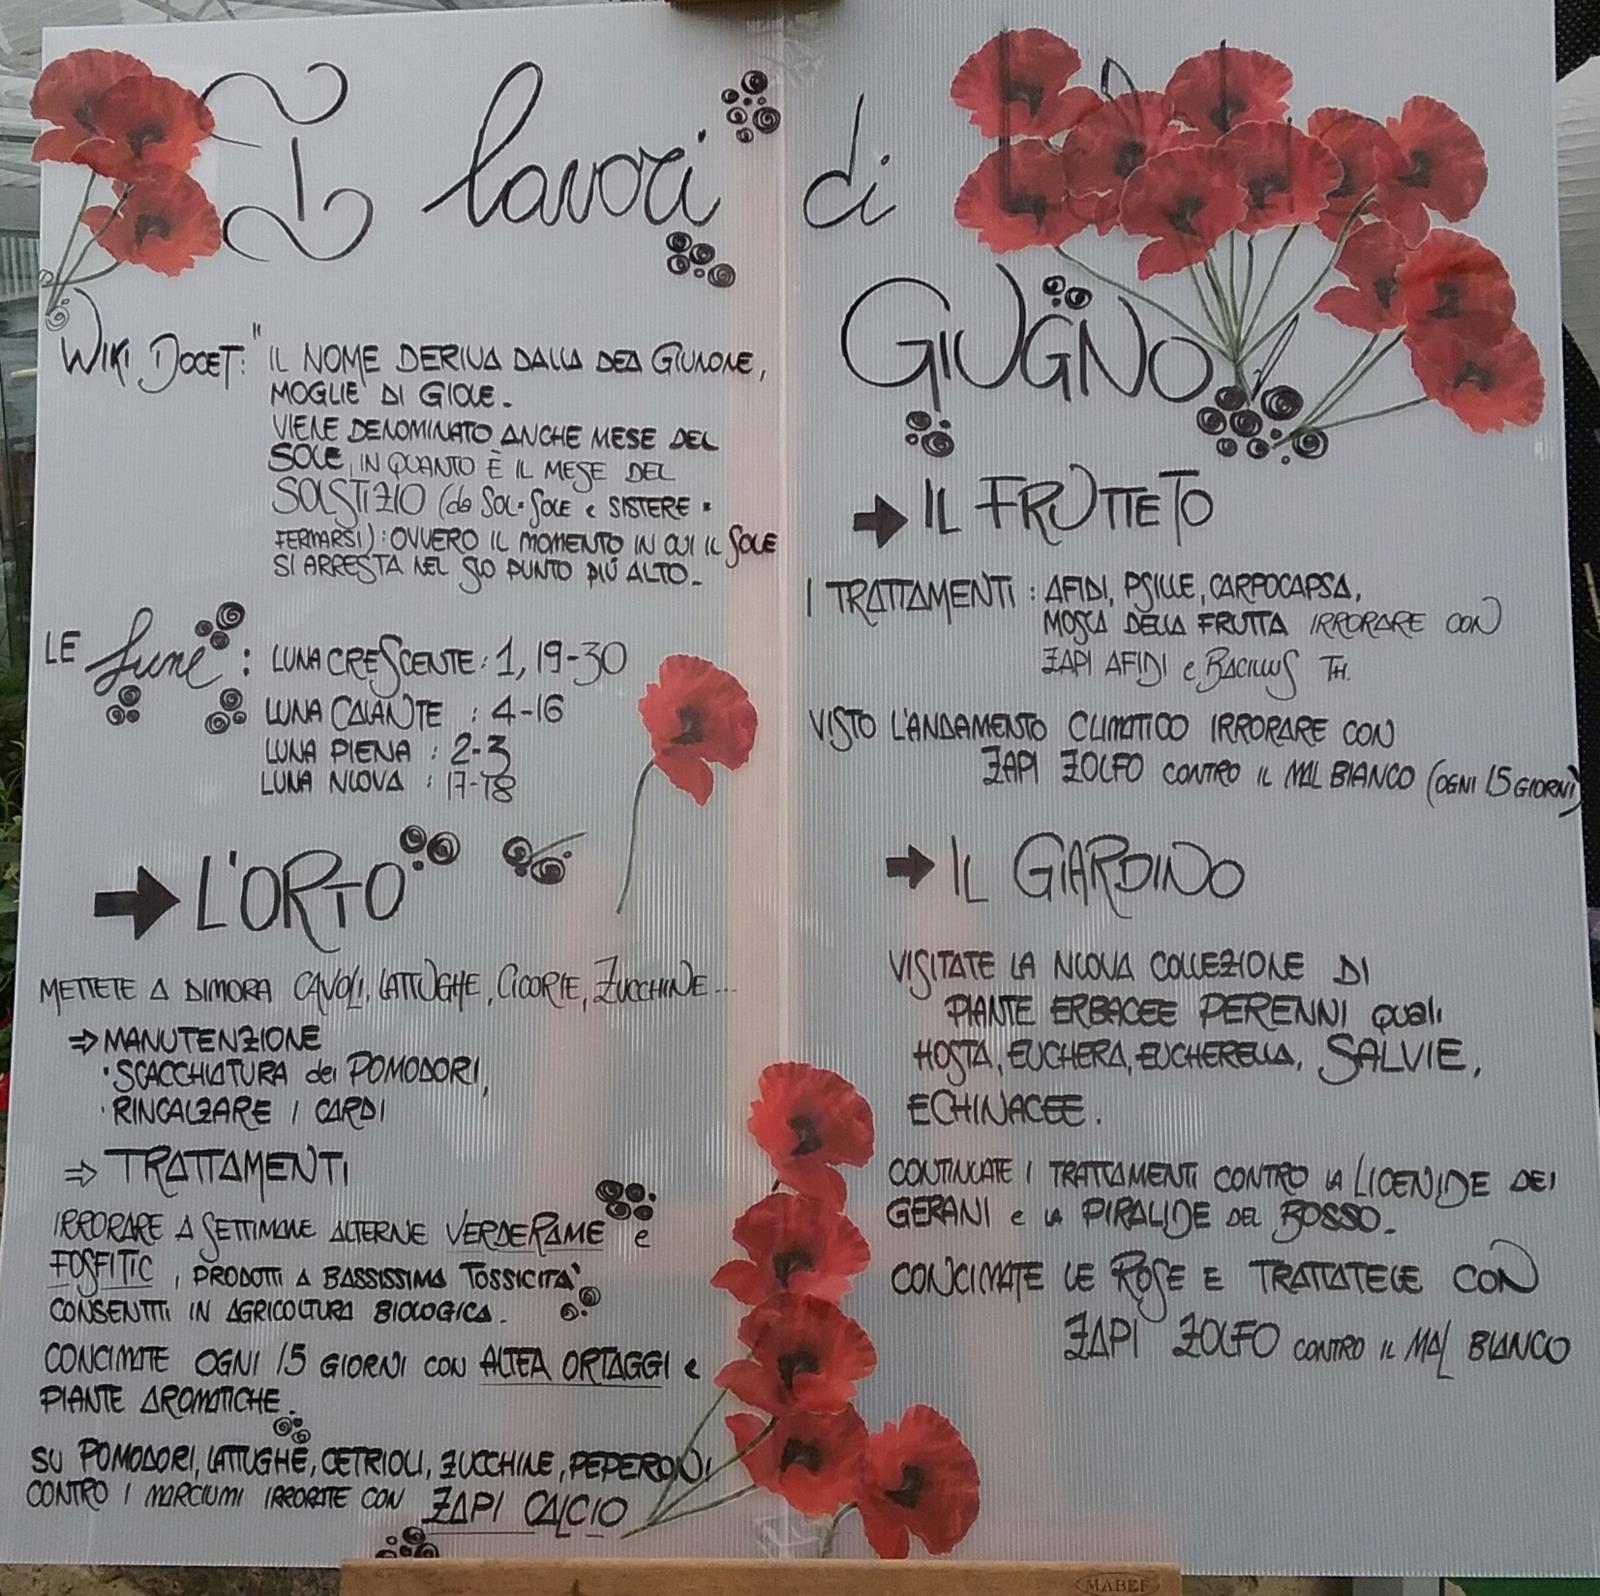 I lavori di
GIUGNO
WIKI DOCET: "IL NOME DERIVA DALLA DEA GIUNONE,
MOGLIE DI GIOVE.
VIENE DENOMINATO ANCHE MESE DEL
SOLE, IN QUANTO È IL MESE DEL
SOLSTIZIO (da SOL=SOLE e SISTERE =
FERMARSI): OVVERO IL MOMENTO IN CUI IL SOLE
SI ARRESTA NEL SUO PUNTO PIÙ ALTO.
LE lune: LUNA CRESCENTE: 1, 19-30
LUNA CALANTE : 4-16
LUNA PIENA : 2-3
LUNA NUOVA : 17-18
→ L'ORTO
METTETE A DIMORA CAVOLI, LATTUGHE, CICORIE, ZUCCHINE...
⇒ MANUTENZIONE
· SCACCHIATURA dei POMODORI,
· RINCALZARE I CARDI
⇒ TRATTAMENTI
IRRORARE A SETTIMANE ALTERNE VERDERAME e
FOSFITIC, PRODOTTI A BASSISSIMA TOSSICITA'
CONSENTITI IN AGRICOLTURA BIOLOGICA.
CONCIMATE OGNI 15 GIORNI CON ALTEA ORTAGGI e
PIANTE AROMATICHE.
SU POMODORI, LATTUGHE, CETRIOLI, ZUCCHINE, PEPERONI
CONTRO I MARCIUMI IRRORATE CON ZAPI CALCIO
→ IL FRUTTETO
I TRATTAMENTI: AFIDI, PSILLE, CARPOCAPSA,
MOSCA DELLA FRUTTA IRRORARE CON
ZAPI AFIDI e BACILLUS TH.
VISTO L'ANDAMENTO CLIMATICO IRRORARE CON
ZAPI ZOLFO CONTRO IL MAL BIANCO (OGNI 15 GIORNI)
→ IL GIARDINO
VISITATE LA NUOVA COLLEZIONE DI
PIANTE ERBACEE PERENNI quali
HOSTA, EUCHERA, EUCHERELLA, SALVIE,
ECHINACEE.
CONTINUATE I TRATTAMENTI CONTRO LA LICENIDE DEI
GERANI e LA PIRALIDE DEL BOSSO.
CONCIMATE LE ROSE E TRATTATELE CON
ZAPI ZOLFO CONTRO IL MAL BIANCO
MABEF